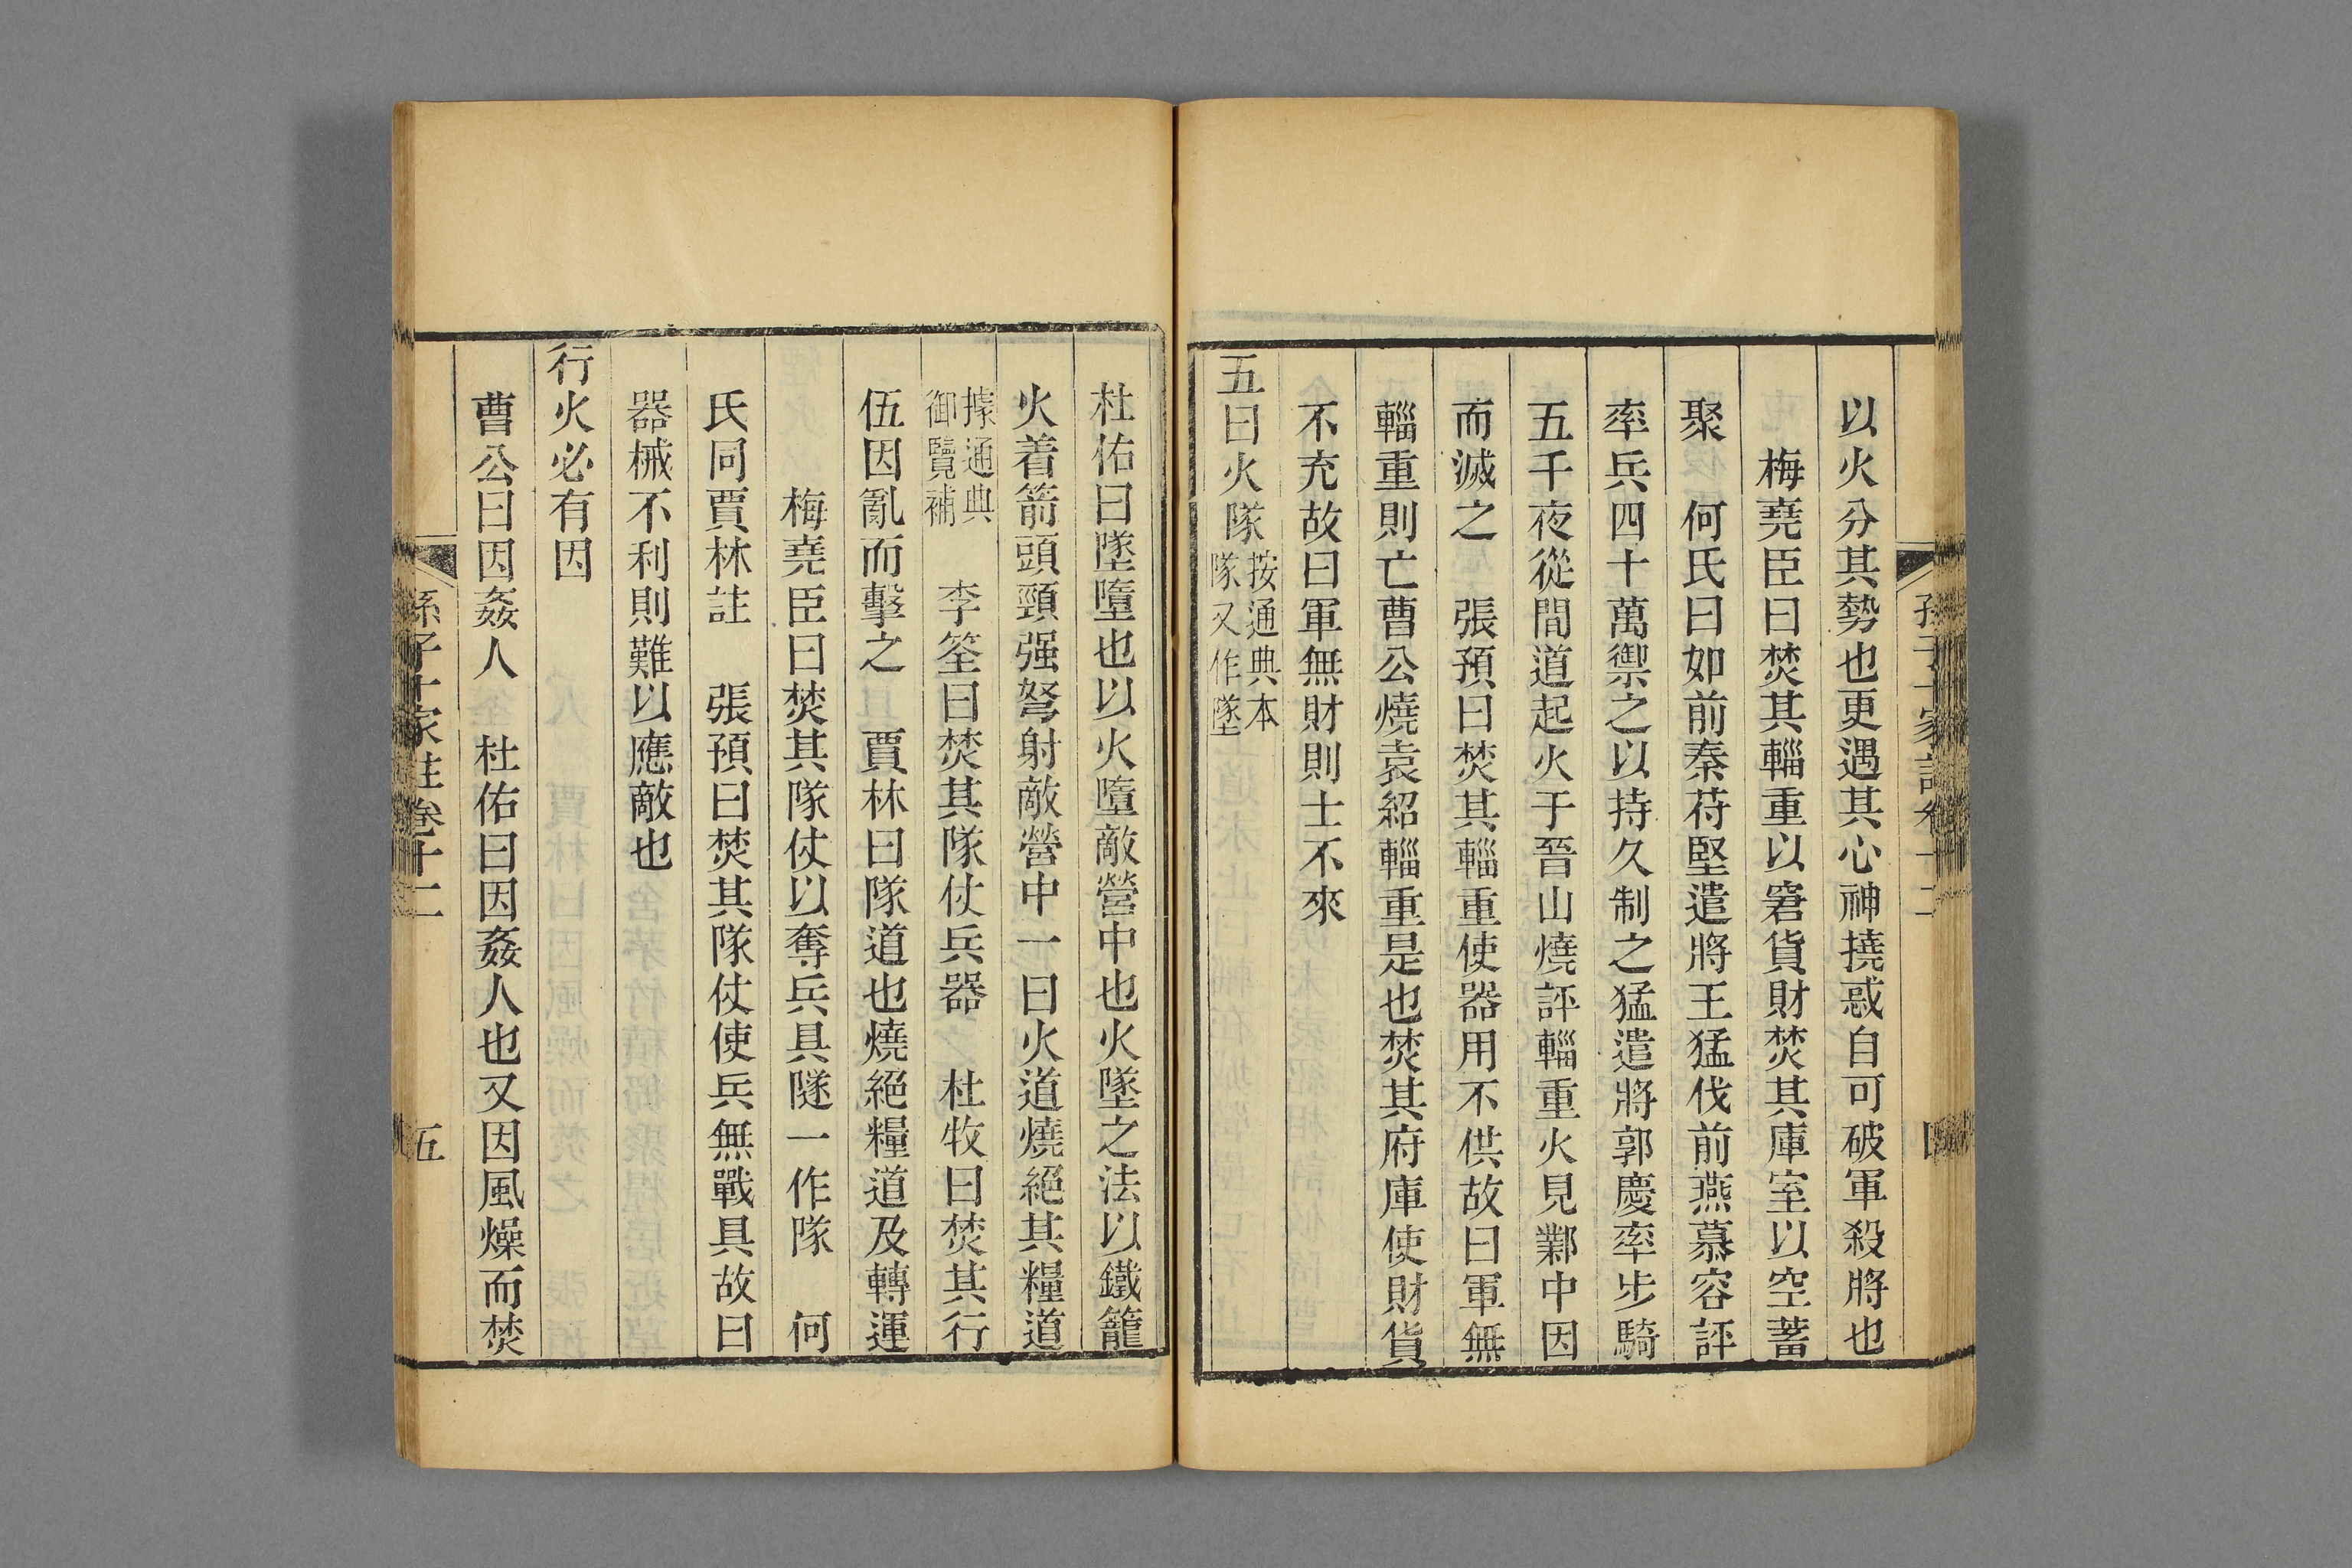 以火分其勢也更遇其心神撓惑自可破軍殺將也
梅堯臣曰焚其輜重以窘貨財焚其庫室以空蓄
聚　何氏曰如前秦苻堅遣將王猛伐前燕慕容評
率兵四十萬禦之以持久制之猛遣將郭慶率步騎
五千夜從間道起火于晉山燒評輜重火見鄴中因
而滅之　張預曰焚其輜重使器用不供故曰軍無
輜重則亡曹公燒袁紹輜重是也焚其府庫使財貨
不充故曰軍無財則士不來
五曰火隊
按通典本
隊又作墜
杜佑曰墜墮也以火墮敵營中也火墜之法以鐵籠
火着箭頭頸强弩射敵營中一曰火道燒絕其糧道
據通典
御覽補
李筌曰焚其隊仗兵器　杜牧曰焚其行
伍因亂而擊之　賈林曰隊道也燒絕糧道及轉運
梅堯臣曰焚其隊仗以奪兵具隧一作隊　何
氏同賈林註　張預曰焚其隊仗使兵無戰具故曰
器械不利則難以應敵也
行火必有因
曹公曰因姦人　杜佑曰因姦人也又因風燥而焚
孫子十家註卷十二
五